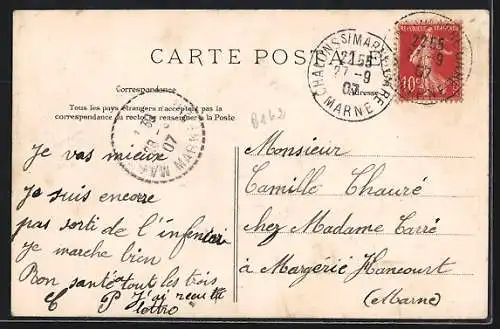 CARTE POSTALE
CHALONS S/MARNE GARE
MARNE
21 55
27 -9
07
RÉPUBLIQUE FRANÇAISE
10c
Correspondance
Adresse
Tous les pays étrangers n'acceptent pas la
correspondance au recto, se renseigner à la Poste
B162
MARNE
07
Je vas mieux
Je suis encorre
pas sorti de l'infenieri
Je marche bien
Bon santé a tout les trois
P J'ai recu ta
lettro
Monsieur
Camille Chauré
chez Madame Carré
à Margerie Hancourt
(Marne)